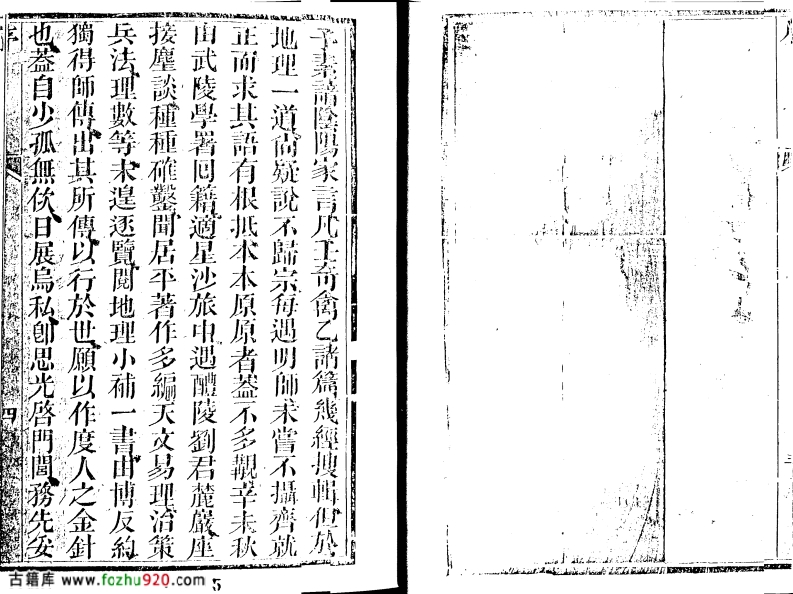 予素諳陰陽家言凡壬奇禽乙諸篇幾經搜輯但於
地理一道尚疑說不歸宗每遇明師未嘗不攝齊就
正而求其語有根抵本本原原者葢不多覯辛未秋
由武陵學署囘籍適星沙旅中遇醴陵劉君麓巖座
接塵談種種確鑿聞居平著作多編天文易理治策
兵法理數等未遑逐覽閱地理小補一書由博反約
獨得師傳出其所傳以行於世願以作度人之金針
也葢自少孤無依日展烏私卽思光啓門閭務先妥
序
四
古籍库 www.fozhu920.com
5